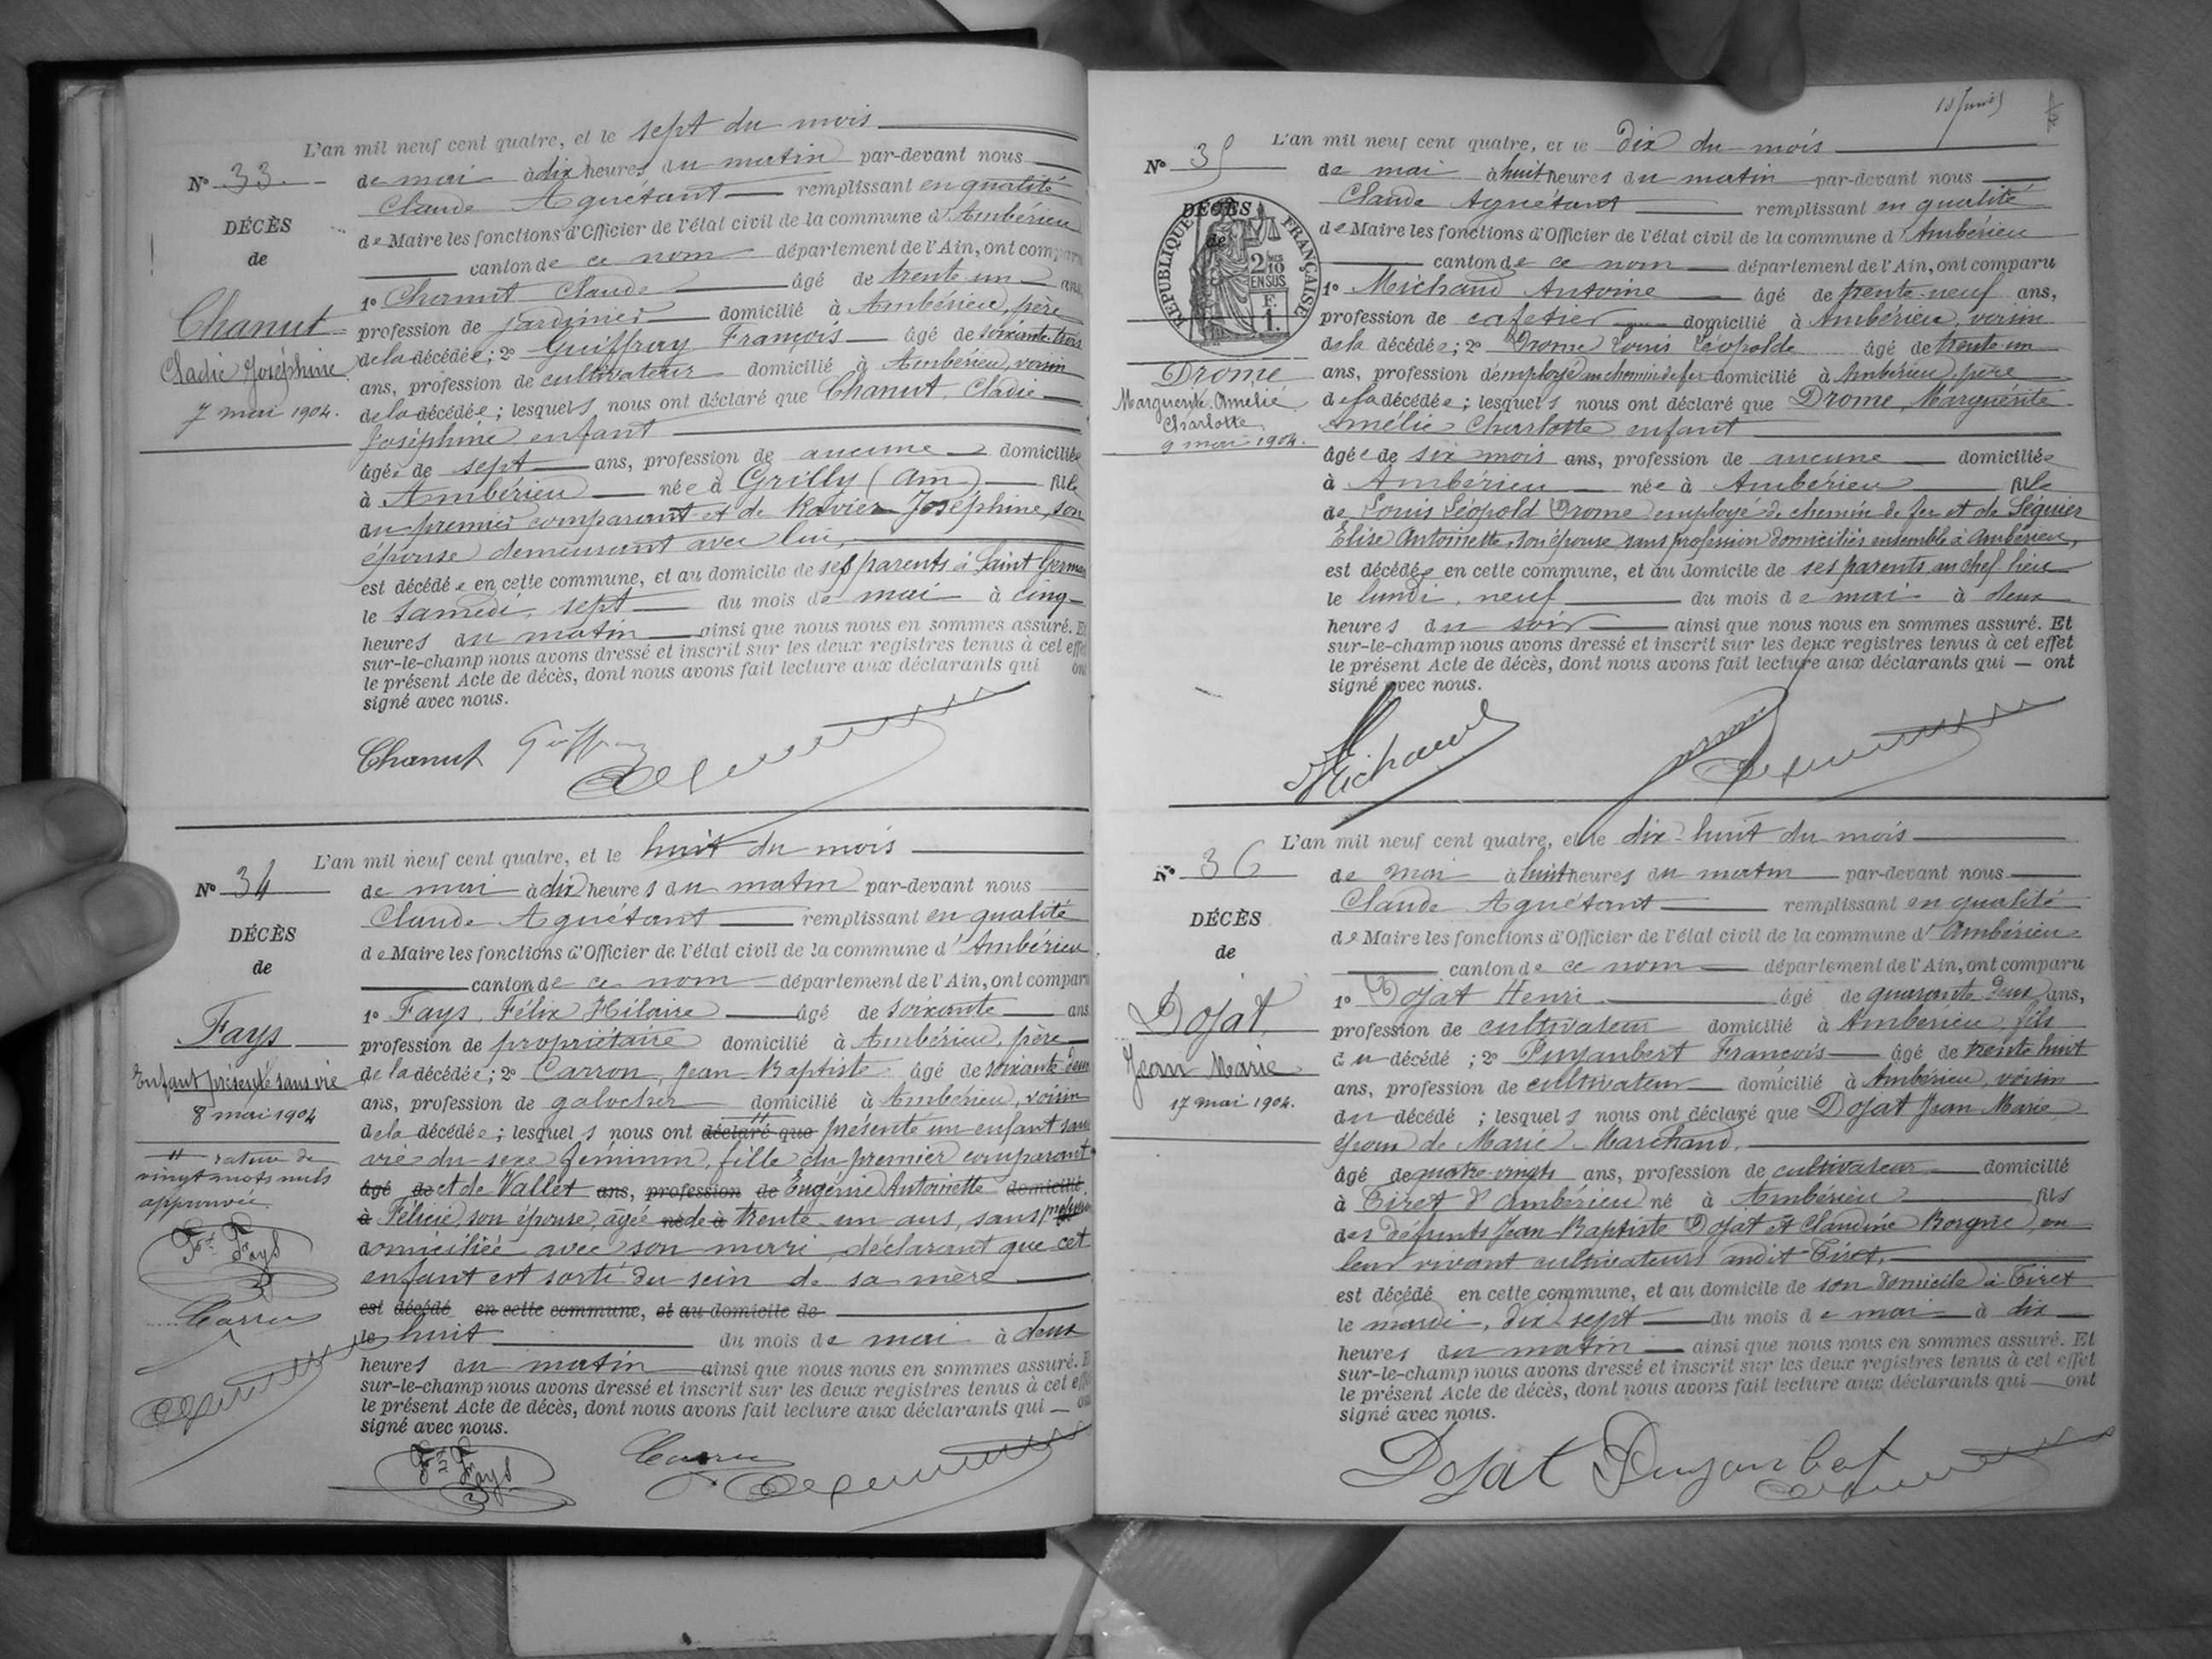 L'an mil neuf cent quatre, et le sept du mois
N° 33.
de mai à dix heures du matin par-devant nous
Claude Aguétant remplissant en qualité
DÉCÈS
de Maire les fonctions d'Officier de l'état civil de la commune d'Ambérieu
de
canton de ce nom département de l'Ain, ont comparu
1° Chanut Claude âgé de trente un ans,
Chanut
profession de jardinier domicilié à Ambérieu, père
Cladie Joséphine
de la décédée; 2° Guiffray François âgé de soixante trois
7 mai 1904.
ans, profession de cultivateur domicilié à Ambérieu, voisin
de la décédée; lesquels nous ont déclaré que Chanut, Cladie
Joséphine enfant
âgée de sept ans, profession de aucune domiciliée
à Ambérieu née à Grilly (Ain) fille
du premier comparant et de Ravier Joséphine, son
épouse demeurant avec lui,
est décédée en cette commune, et au domicile de ses parents à Saint Germain
le samedi, sept du mois de mai à cinq
heures du matin ainsi que nous nous en sommes assuré. Et
sur-le-champ nous avons dressé et inscrit sur les deux registres tenus à cet effet
le présent Acte de décès, dont nous avons fait lecture aux déclarants qui ont
signé avec nous.
Chanut Guiffray
L'an mil neuf cent quatre, et le huit du mois
N° 34
de mai à dix heures du matin par-devant nous
Claude Aguétant remplissant en qualité
DÉCÈS
de Maire les fonctions d'Officier de l'état civil de la commune d'Ambérieu
de
canton de ce nom département de l'Ain, ont comparu
1° Fays, Félix Hilaire âgé de soixante ans
Fays
profession de propriétaire domicilié à Ambérieu, père
Enfant présenté sans vie
de la décédée; 2° Carron, Jean Baptiste âgé de soixante deux
8 mai 1904
ans, profession de galocher domicilié à Ambérieu, voisin
de la décédée; lesquels nous ont déclaré que présenté un enfant sans
vie du sexe féminin, fille du premier comparant
rature de
vingt mots nuls
approuvée
âgé de et de Vallet ans, profession de Eugénie Antoinette domicilié
à Félicie, son épouse, âgée né de à trente un ans, sans profession
domiciliée avec son mari, déclarant que cet
enfant est sorti du sein de sa mère
est décédé en cette commune, et au domicile de
le huit du mois de mai à deux
heures du matin ainsi que nous nous en sommes assuré. Et
sur-le-champ nous avons dressé et inscrit sur les deux registres tenus à cet effet
le présent Acte de décès, dont nous avons fait lecture aux déclarants qui ont
signé avec nous.
Fays
Carron
Fays Carron
L'an mil neuf cent quatre, et le dix du mois
N° 35
de mai à huit heures du matin par-devant nous
Claude Aguétant remplissant en qualité
DÉCÈS
de
RÉPUBLIQUE FRANÇAISE
2/10 EN SUS
1 F.
de Maire les fonctions d'Officier de l'état civil de la commune d'Ambérieu
canton de ce nom département de l'Ain, ont comparu
1° Michaud Antoine âgé de trente-neuf ans,
profession de cafetier domicilié à Ambérieu, voisin
de la décédée; 2° Drome Louis Léopolde âgé de trente un
Drome
ans, profession d'employé au chemin de fer domicilié à Ambérieu, père
Marguerite Amélie
Charlotte
9 mai 1904.
de la décédée; lesquels nous ont déclaré que Drome, Marguerite
Amélie Charlotte enfant
âgée de six mois ans, profession de aucune domiciliée
à Ambérieu née à Ambérieu fille
de Louis Léopold Drome employé de chemin de fer et de Séguier
Elise Antoinette, son épouse sans profession domiciliés ensemble à Ambérieu,
est décédée en cette commune, et au domicile de ses parents au chef lieu
le lundi, neuf du mois de mai à deux
heures du soir ainsi que nous nous en sommes assuré. Et
sur-le-champ nous avons dressé et inscrit sur les deux registres tenus à cet effet
le présent Acte de décès, dont nous avons fait lecture aux déclarants qui — ont
signé avec nous.
Michaud
L'an mil neuf cent quatre, et le dix-huit du mois
N° 36
de mai à huit heures du matin par-devant nous
Claude Aguétant remplissant en qualité
DÉCÈS
de Maire les fonctions d'Officier de l'état civil de la commune d'Ambérieu
de
canton de ce nom département de l'Ain, ont comparu
1° Dojat Henri âgé de quarante deux ans,
Dojat
profession de cultivateur domicilié à Ambérieu fils
Jean Marie
du décédé; 2° Puyaubert François âgé de trente huit
17 mai 1904.
ans, profession de cultivateur domicilié à Ambérieu, voisin
du décédé; lesquels nous ont déclaré que Dojat Jean Marie
époux de Marie Marchand,
âgé de quatre-vingts ans, profession de cultivateur domicilié
à Tiret d'Ambérieu né à Ambérieu fils
des défunts Jean-Baptiste Dojat et Claudine Borgne, en
leur vivant cultivateurs audit Tiret,
est décédé en cette commune, et au domicile de son domicile à Tiret
le mardi, dix sept du mois de mai à dix
heures du matin ainsi que nous nous en sommes assuré. Et
sur-le-champ nous avons dressé et inscrit sur les deux registres tenus à cet effet
le présent Acte de décès, dont nous avons fait lecture aux déclarants qui ont
signé avec nous.
Dojat Puyaubert